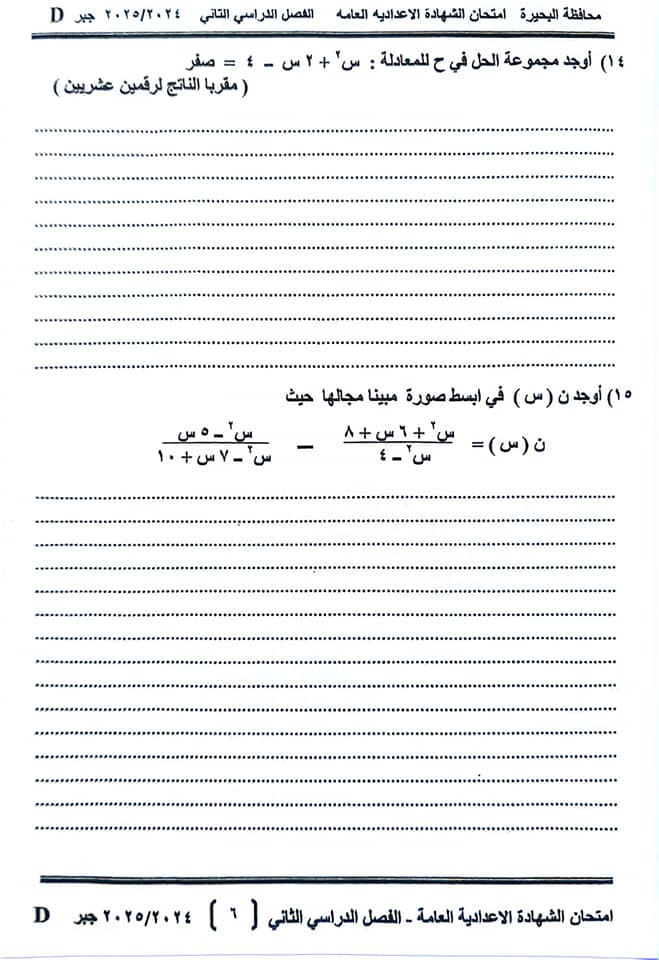 محافظة البحيرة امتحان الشهادة الاعداديه العامه الفصل الدراسي التاني ٢٠٢٥/٢٠٢٤ جبر D
١٤) أوجد مجموعة الحل في ح للمعادلة : س٢ + ٢ س – ٤ = صفر
( مقربا الناتج لرقمين عشريين )
١٥) أوجد ن ( س ) في ابسط صورة مبينا مجالها حيث
ن ( س ) = س٢ + ٦ س + ٨ / س٢ – ٤ – س٢ – ٥ س / س٢ – ٧ س + ١٠
امتحان الشهادة الاعدادية العامة - الفصل الدراسي الثاني [ ٦ ] ٢٠٢٥/٢٠٢٤ جبر D